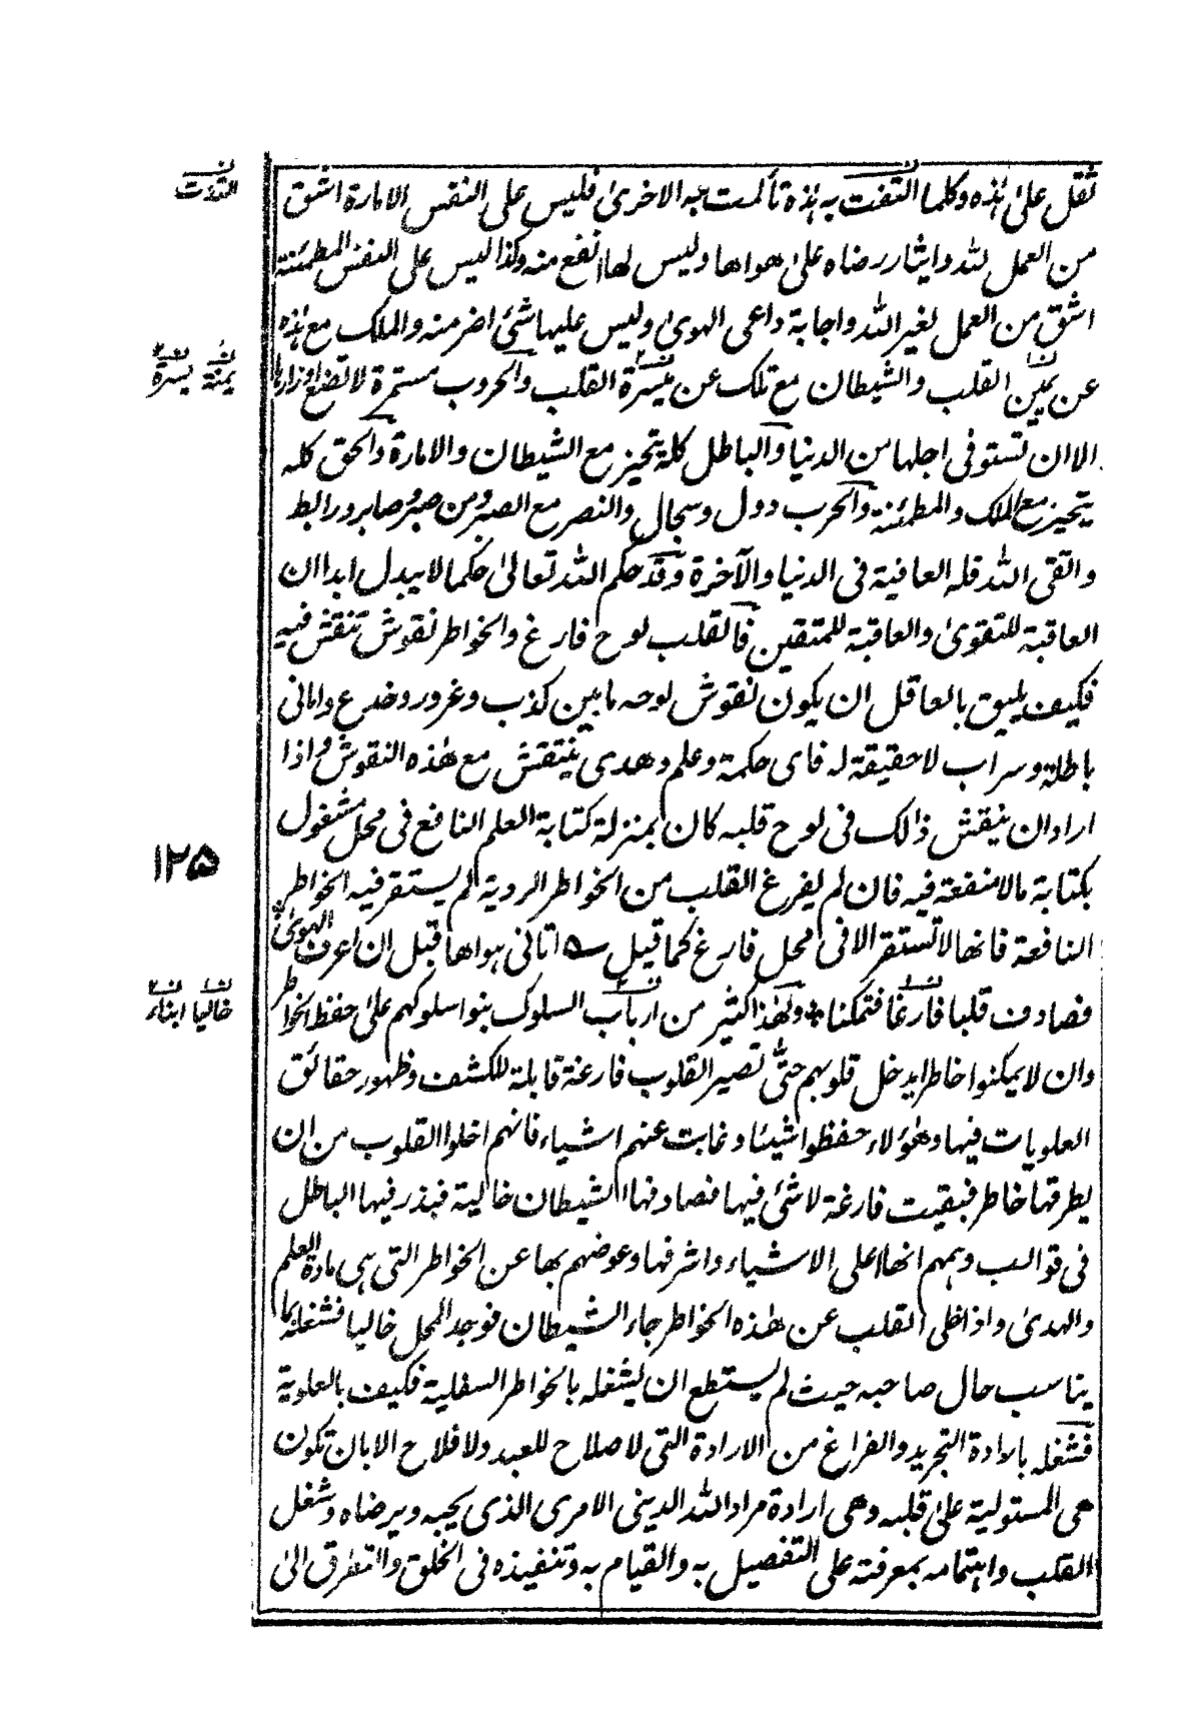 ثقل على هذه وكلما التفت به هذه تألمت به الاخرى فليس على النفس الامارة اشق
من العمل لله وايثار رضاه على هواها وليس لها انفع منه وكذا ليس على النفس المطمئنة
اشق من العمل لغير الله واجابة داعى الهوى وليس عليها شئ اضر منه والملك مع هذه
عن يمين القلب والشيطان مع تلك عن ميسرة القلب والحروب مستمرة لا تضع اوزارها
الا ان تستوفى اجلها من الدنيا والباطل كله يتحيز مع الشيطان والامارة والحق كله
يتحيز مع الملك والمطمئنة والحرب دول وسجال والنصر مع الصبر ومن صبر وصابر ورابط
واتقى الله فله العافية فى الدنيا والآخرة وقد حكم الله تعالى حكما لا يبدل ابدا ان
العاقبة للتقوى والعاقبة للمتقين فالقلب لوح فارغ والخواطر نقوش تنقش فيه
فكيف يليق بالعاقل ان يكون نقوش لوحه ما بين كذب وغرور وخدع وامانى
باطلة وسراب لا حقيقة له فاى حكمة وعلم وهدى ينتقش مع هذه النقوش واذا
اراد ان ينقش ذالك فى لوح قلبه كان بمنزلة كتابة العلم النافع فى محل مشغول
بكتابة مالا منفعة فيه فان لم يفرغ القلب من الخواطر الردية لم يستقر فيه الخواطر
النافعة فانها لا تستقر الا فى محل فارغ كما قيل ـه اتانى هواها قبل ان اعرف الهوى *
فصادف قلبا فارغا فتمكنا * ولهذا كثير من ارباب السلوك بنوا سلوكهم على حفظ الخواطر
وان لا يمكنوا خاطرا يدخل قلوبهم حتى تصير القلوب فارغة قابلة للكشف وظهور حقائق
العلويات فيها وهؤلاء حفظوا شيئا وغابت عنهم اشياء فانهم اخلوا القلوب من ان
يطرقها خاطر فبقيت فارغة لا شئ فيها فصادفها الشيطان خالية فبذر فيها الباطل
فى قوالب وهمهم انها اعلى الاشياء واشرفها وعوضهم بها عن الخواطر التى هى مادة العلم
والهدى واذا خلى القلب عن هذه الخواطر جاء الشيطان فوجد المحل خاليا فشغله بما
يناسب حال صاحبه حيث لم يستطع ان يشغله بالخواطر السفلية فكيف بالعلوية
فشغله بارادة التجريد والفراغ من الارادة التى لا صلاح للعبد ولا فلاح الا بان تكون
هى المستولية على قلبه وهى ارادة مراد الله الدينى الامرى الذى يحبه ويرضاه وشغل
القلب واهتمامه بمعرفته على التفصيل به والقيام به وتنفيذه فى الخلق والتطرق الى
التذت
يمنة يسرة
١٢٥
خاليا ابناء